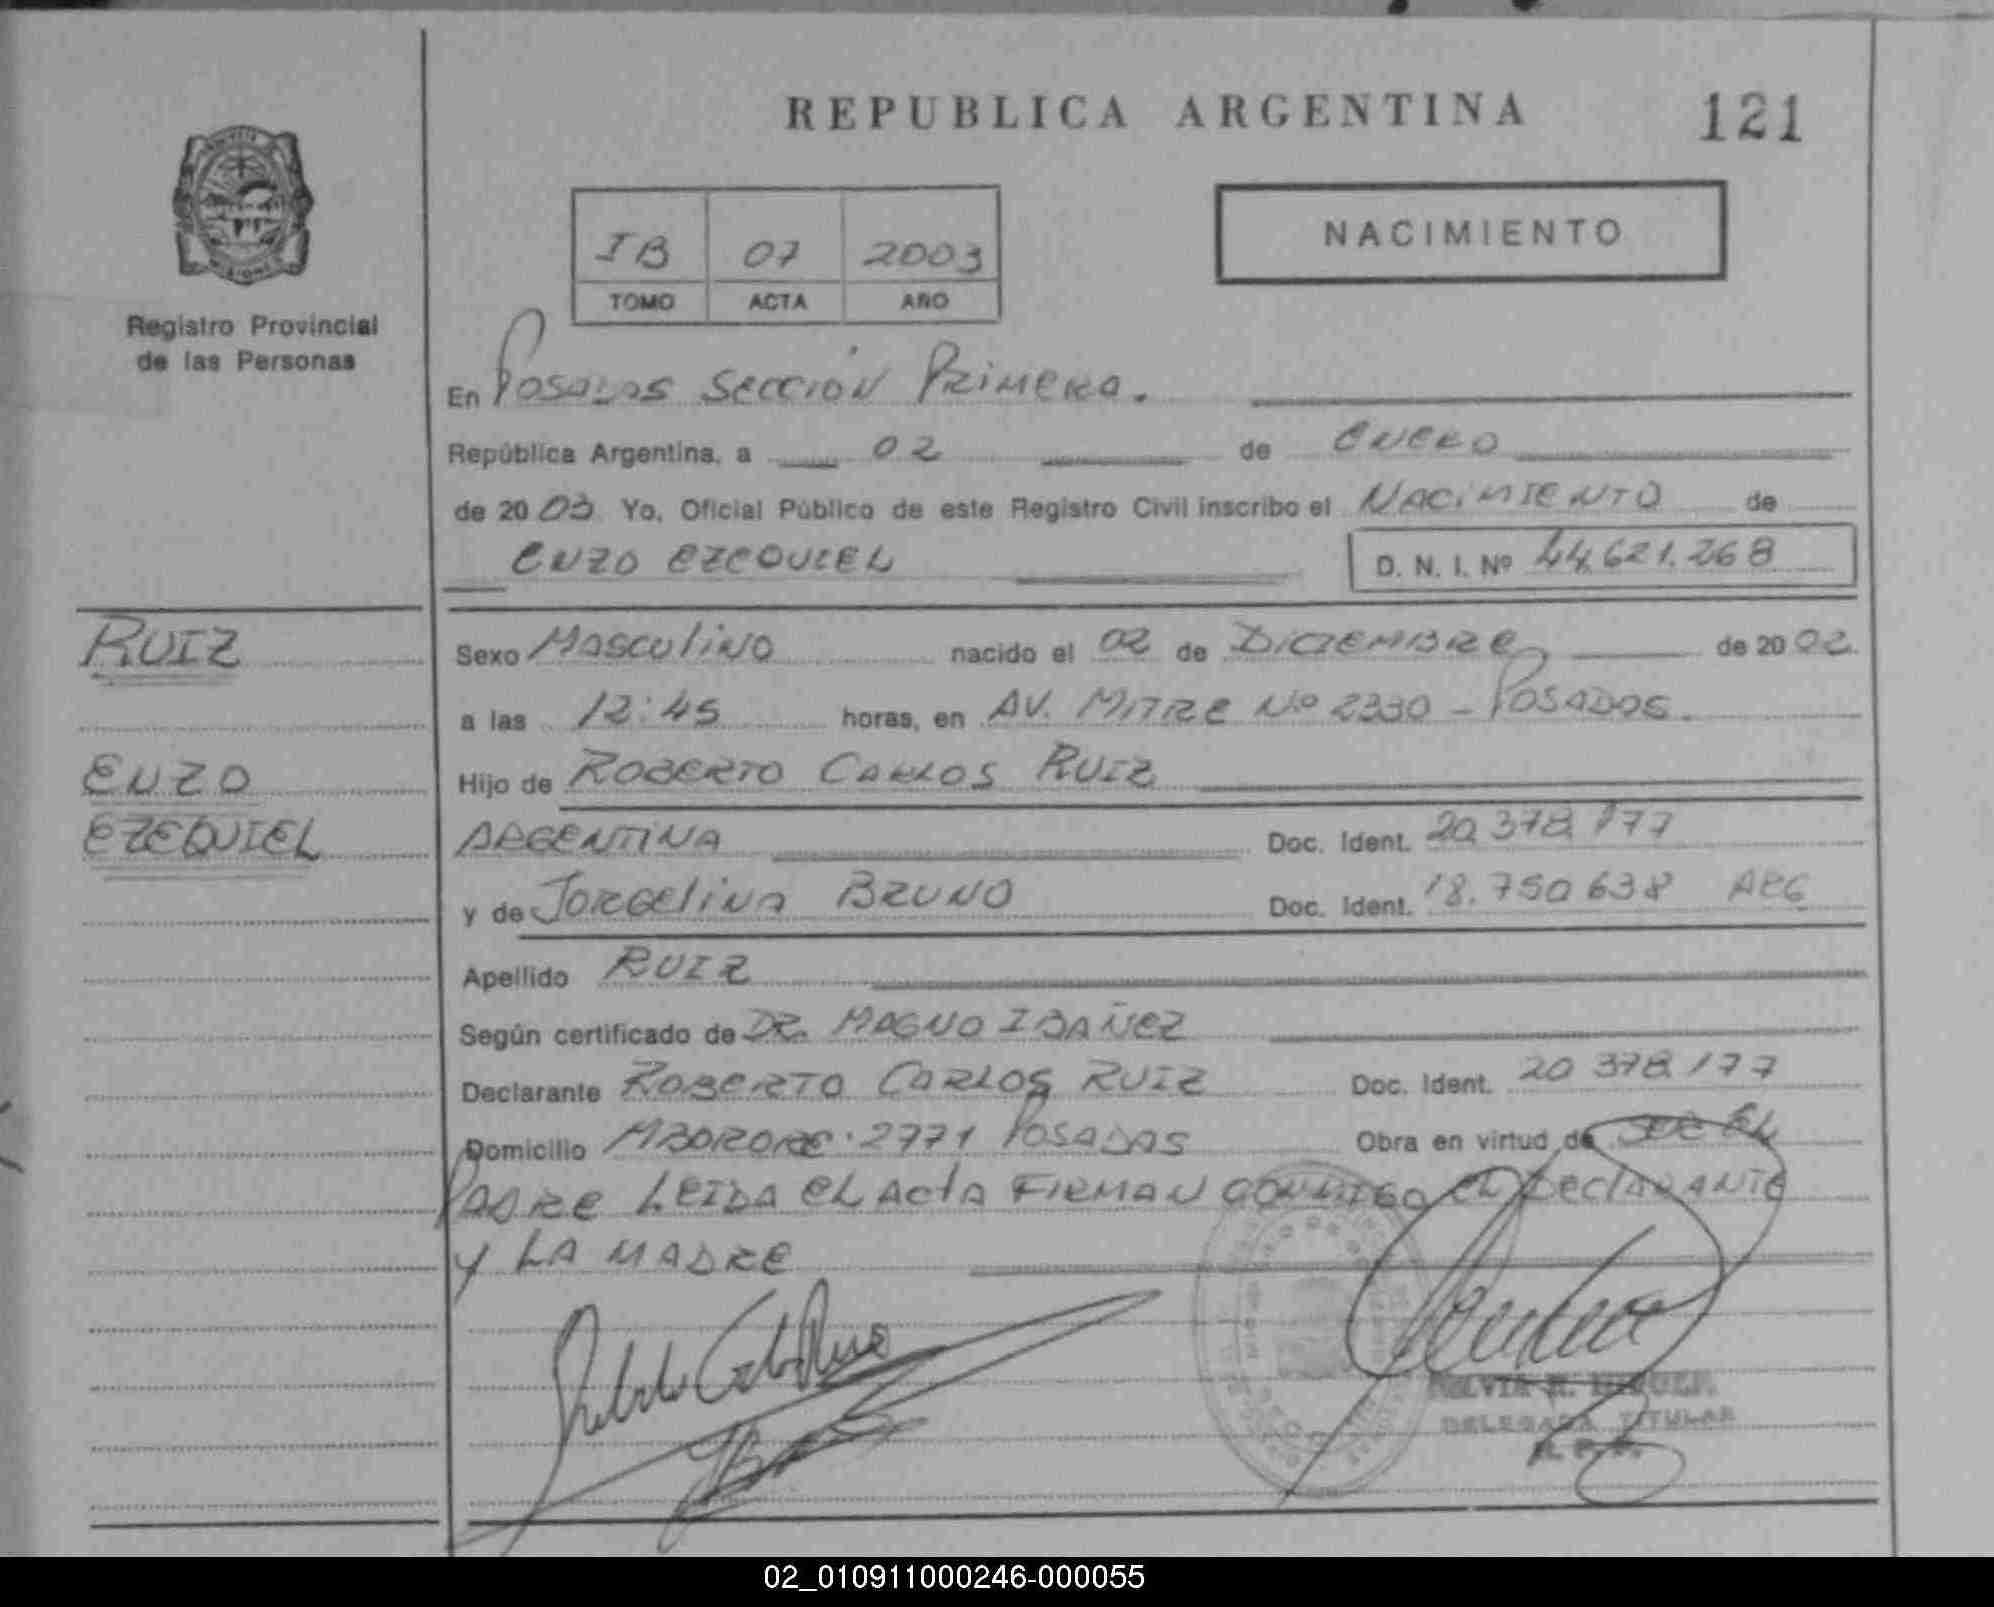 REPUBLICA ARGENTINA
121
NACIMIENTO
IB 07 2003
TOMO ACTA AÑO
Registro Provincial
de las Personas
En Posadas Sección Primera.
República Argentina, a 02 de Enero
de 2003 Yo, Oficial Público de este Registro Civil inscribo el NACIMIENTO de
ENZO EZEQUIEL
D. N. I. Nº 44.621.268
RUIZ
ENZO
EZEQUIEL
Sexo Masculino nacido el 02 de DICIEMBRE de 2002.
a las 12:45 horas, en AV. MITRE Nº 2330 - POSADAS.
Hijo de ROBERTO CARLOS RUIZ
ARGENTINA Doc. Ident. 20.378.177
y de Jorgelina BRUNO Doc. Ident. 18.750.638 ARG
Apellido RUIZ
Según certificado de DR. MAGNO IBAÑEZ
Declarante ROBERTO CARLOS RUIZ Doc. Ident. 20 378 177
Domicilio MBORORE. 2771 POSADAS Obra en virtud de SER EL
PADRE LEIDA EL ACTA FIRMAN CONMIGO EL DECLARANTE
Y LA MADRE
DELEGADA TITULAR
02_010911000246-000055